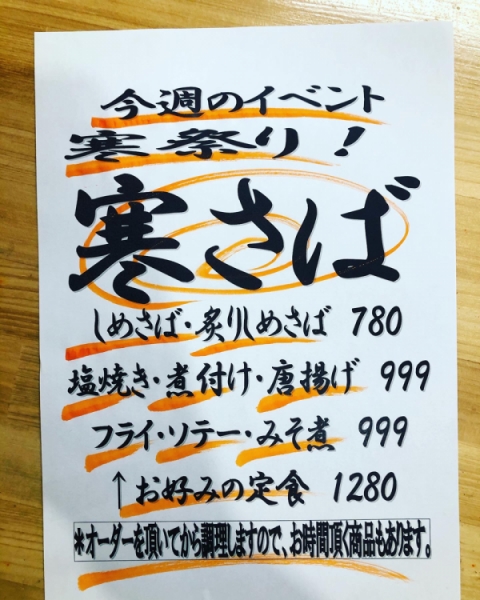 今週のイベント
寒祭り!
寒さば
しめさば・炙りしめさば 780
塩焼き・煮付け・唐揚げ 999
フライ・ソテー・みそ煮 999
↑お好みの定食 1280
*オーダーを頂いてから調理しますので、お時間頂く商品もあります。